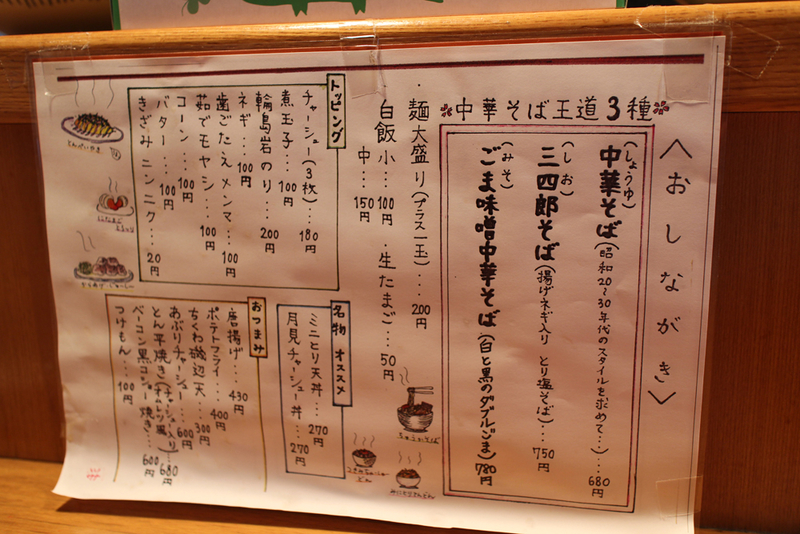 〈おしながき〉
中華そば王道3種
中華そば(しょうゆ)(昭和20~30年代のスタイルを求めて…)…680円
三四郎そば(しお)(揚げネギ入り とり塩そば)…750円
ごま味噌中華そば(みそ)(白と黒のダブルごま)780円
・麺大盛り(プラス一玉)…200円
白飯 小…100円 ・生たまご…50円
中…150円
トッピング
チャーシュー(3枚)…180円
煮玉子…100円
輪島岩のり…200円
ネギ…100円
歯ごたえメンマ…100円
茹でモヤシ…100円
コーン…100円
バター…100円
きざみニンニク…20円
名物 オススメ
ミニとり天丼…270円
月見チャーシュー丼…270円
おつまみ
唐揚げ…430円
ポテトフライ…400円
ちくわ磯辺天…300円
あぶりチャーシュー…600円
とん平焼き(チャーシュー入り オムレツ風)680円
ベーコン黒コショー焼き…600円
つけもん…100円
ちゅうかそば